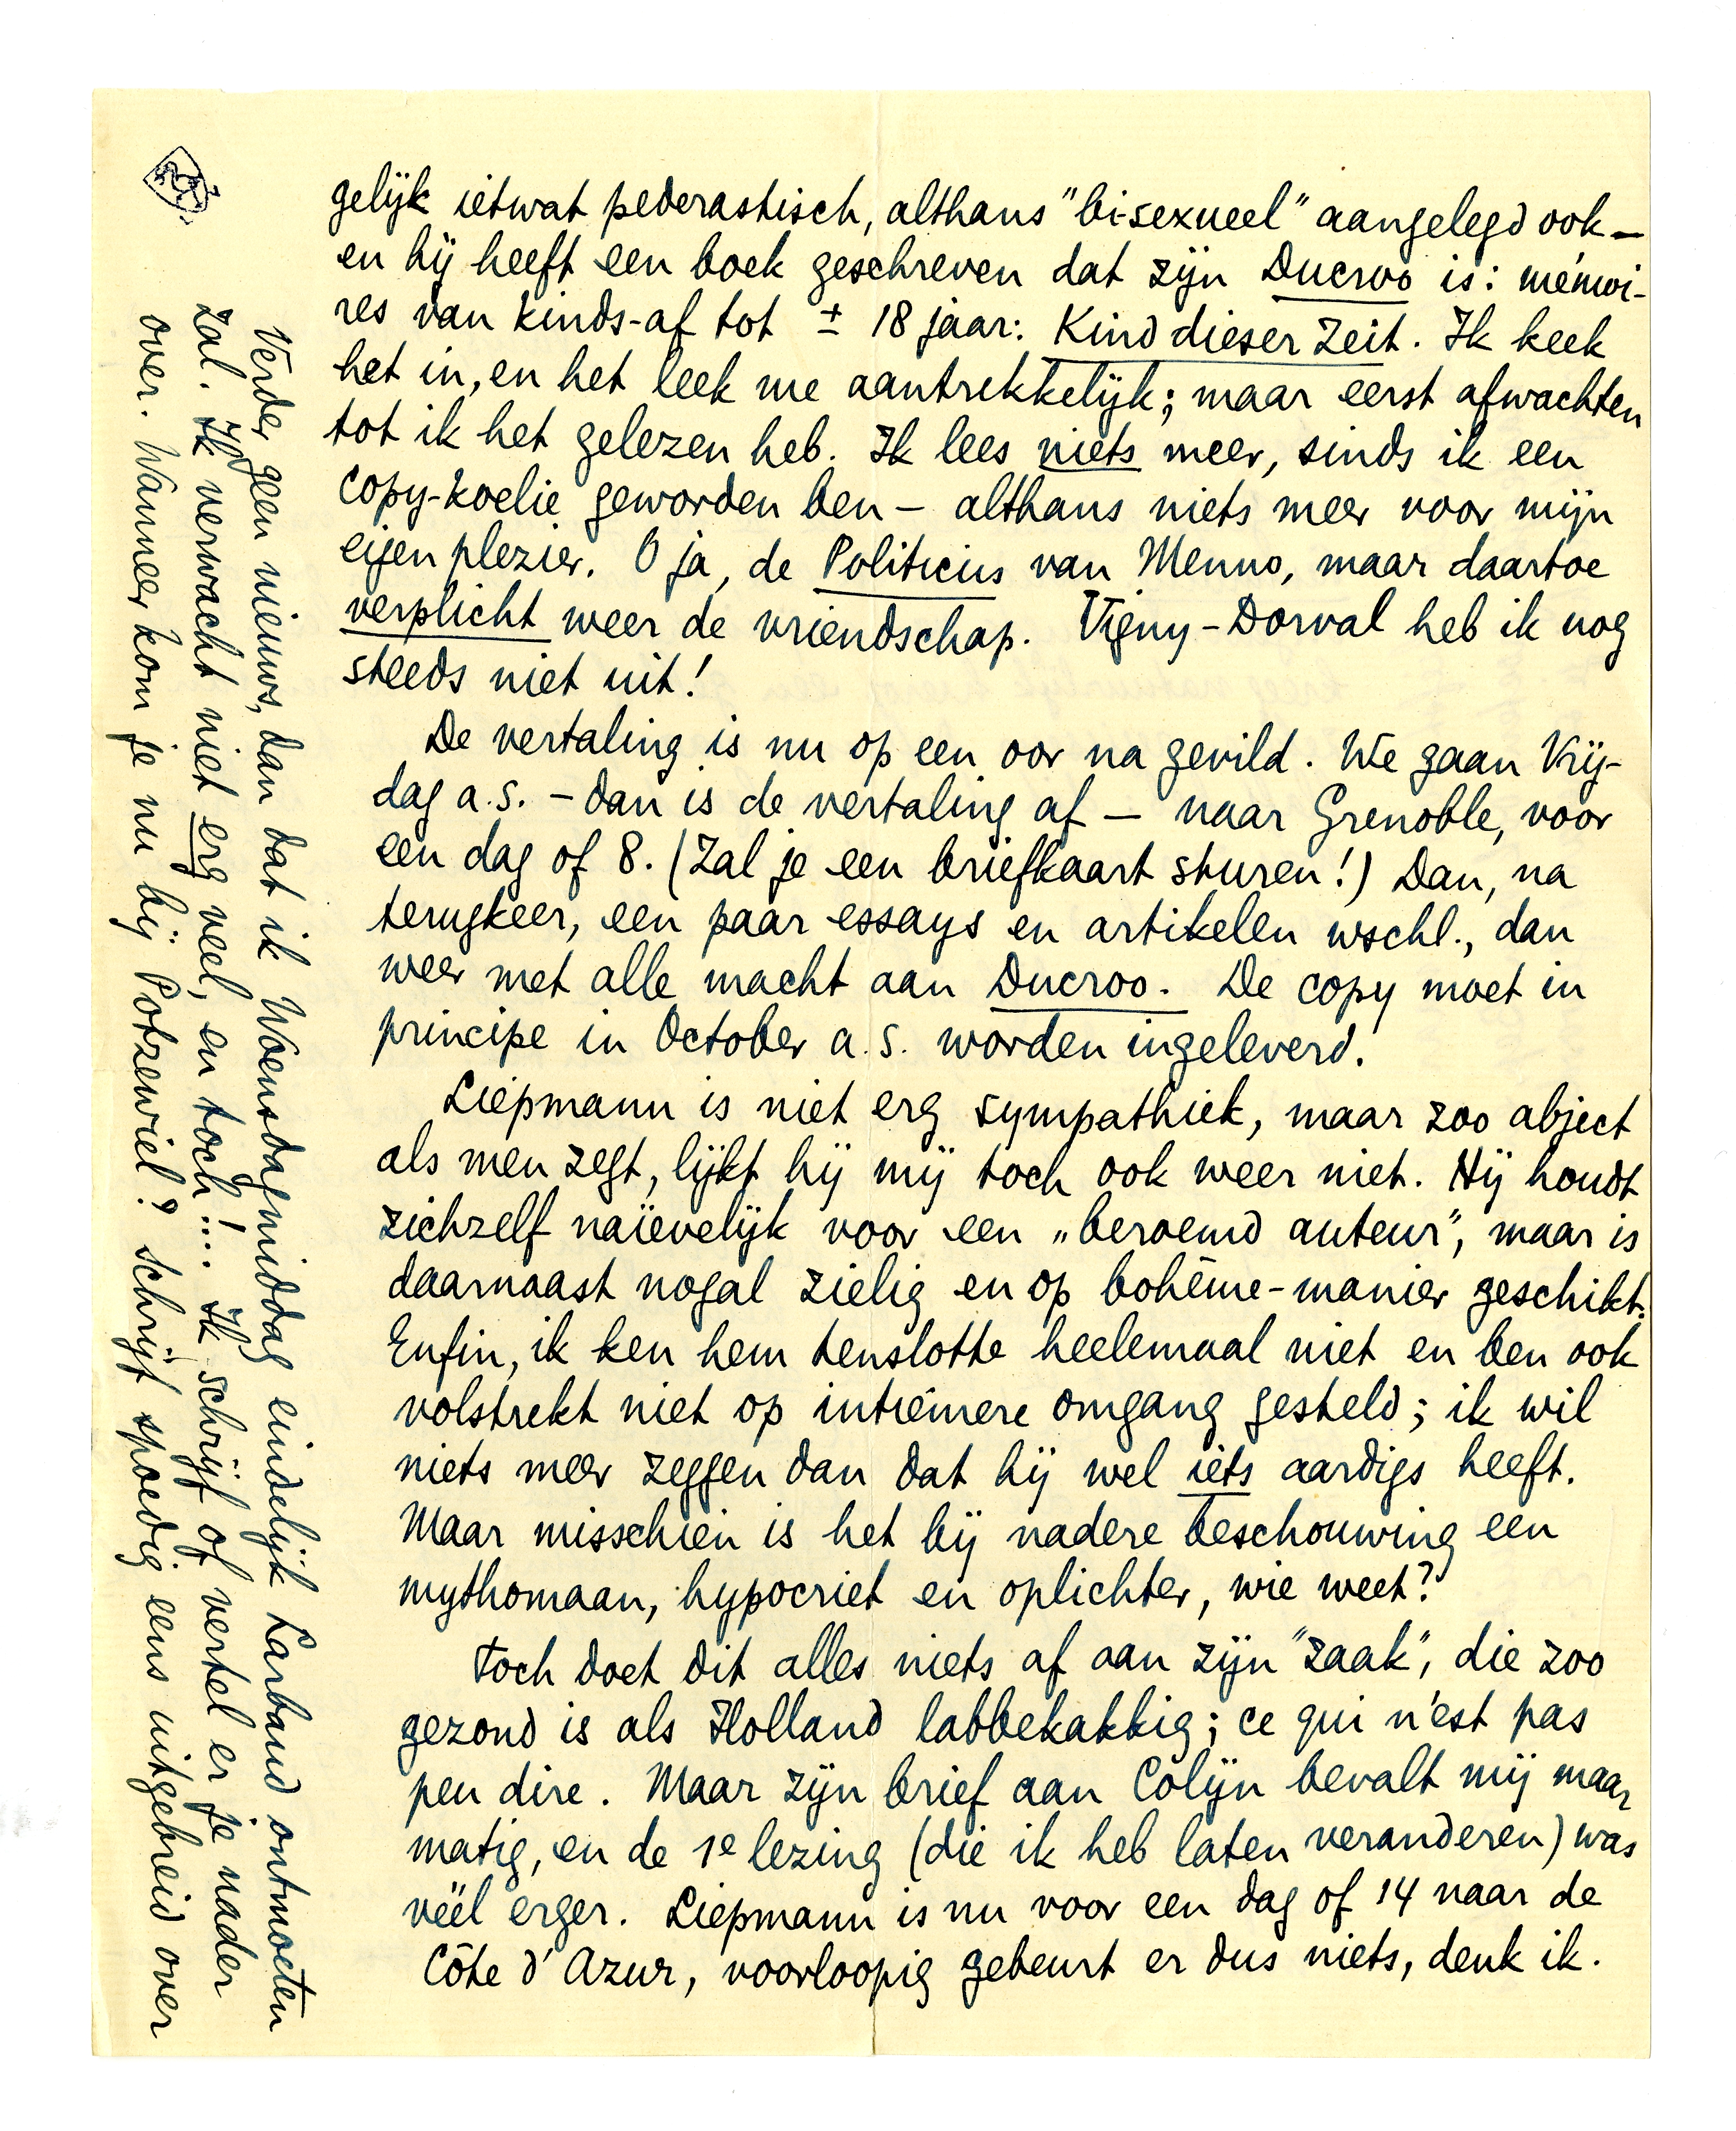 gelijk ietwat pederastisch, althans "bi-sexueel" aangelegd ook —
en hij heeft een boek geschreven dat zijn Ducroo is: mémoi-
res van kinds-af tot ± 18 jaar: Kind dieser Zeit. Ik keek
het in, en het leek me aantrekkelijk; maar eerst afwachten
tot ik het gelezen heb. Ik lees niets meer, sinds ik een
copy-koelie geworden ben — althans niets meer voor mijn
eigen plezier. O ja, de Politicus van Menno, maar daartoe
verplicht weer de vriendschap. Vigny-Dorval heb ik nog
steeds niet uit!
De vertaling is nu op een oor na gevild. We gaan Vrij-
dag a.s. — dan is de vertaling af — naar Grenoble, voor
een dag of 8. (Zal je een briefkaart sturen!) Dan, na
terugkeer, een paar essays en artikelen wschl., dan
weer met alle macht aan Ducroo. De copy moet in
principe in October a.s. worden ingeleverd.
Liepmann is niet erg sympathiek, maar zoo abject
als men zegt, lijkt hij mij toch ook weer niet. Hij houdt
zichzelf naïevelijk voor een „beroemd auteur", maar is
daarnaast nogal zielig en op bohême-manier geschikt.
Enfin, ik ken hem tenslotte heelemaal niet en ben ook
volstrekt niet op intiemere omgang gesteld; ik wil
niets meer zeggen dan dat hij wel iets aardigs heeft.
Maar misschien is het bij nadere beschouwing een
mythomaan, hypocriet en oplichter, wie weet?
Toch doet dit alles niets af aan zijn "zaak", die zoo
gezond is als Holland labbekakkig; ce qui n'est pas
peu dire. Maar zijn brief aan Colijn bevalt mij maar
matig, en de 1e lezing (die ik heb laten veranderen) was
véél erger. Liepmann is nu voor een dag of 14 naar de
Côte d'Azur, voorloopig gebeurt er dus niets, denk ik.
Verder geen nieuws, dan dat ik Woensdagmiddag eindelijk Larbaud ontmoeten
zal. Ik verwacht niet erg veel, en toch!... Ik schrijf of vertel er je nader
over. Wanneer kom je nu bij Potzewiel? Schrijf spoedig eens uitgebreid over